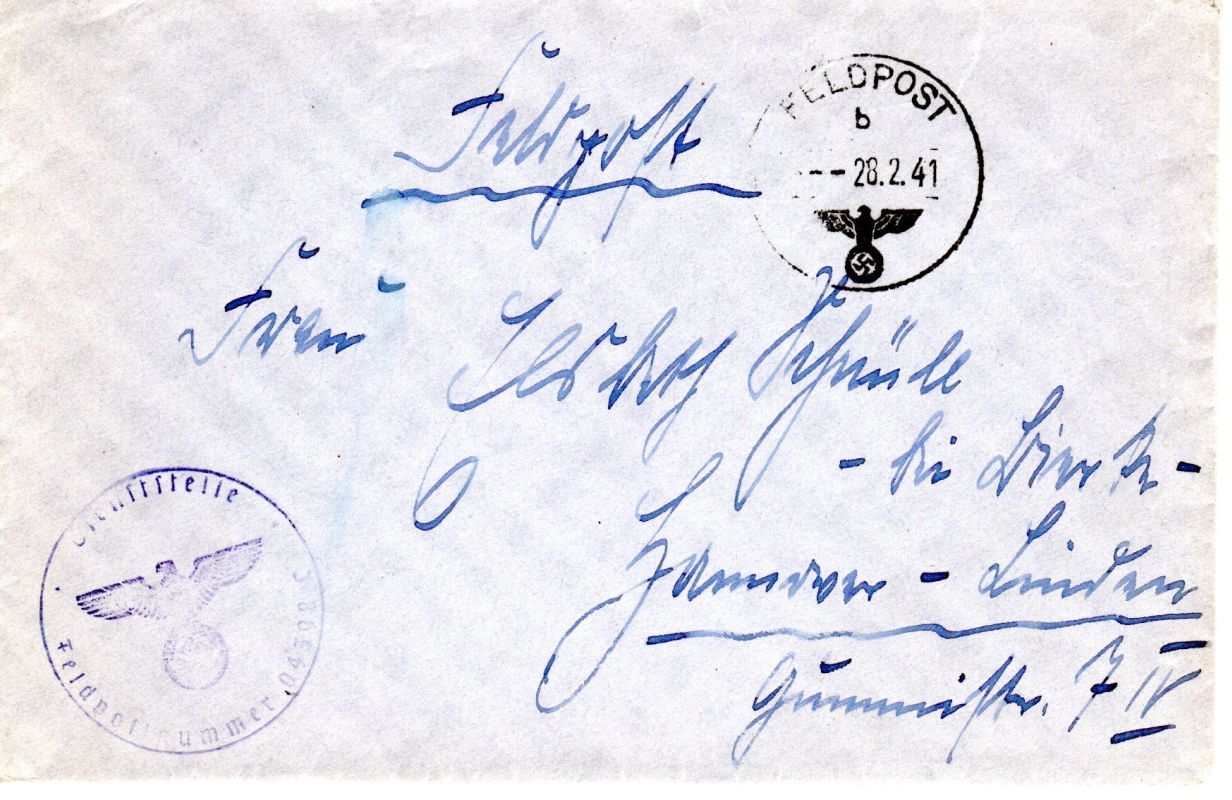 Feldpost
FELDPOST
b
-- 28.2.41
Frau Elsbeth Schäule
- bei Bierke -
Hannover - Linden
Gummistr. 7 IV
Dienststelle
Feldpostnummer 04308 C